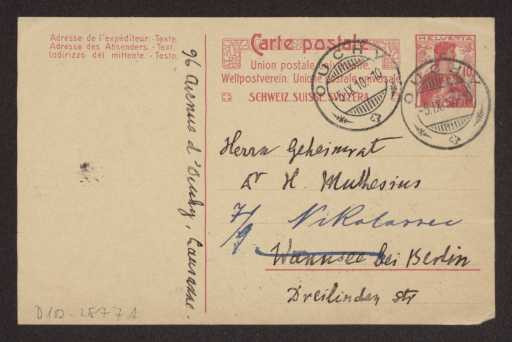 Adresse de l'expéditeur. Texte.
Adresse des Absenders. - Text.
Indirizzo del mittente. - Testo.
Carte postale
Union postale universelle.
Weltpostverein. Unione postale universale.
SCHWEIZ. SUISSE. SVIZZERA.
HELVETIA
10
OUCHY
OUCHY
96 Avenue d'Ouchy, Lausanne.
Herrn Geheimrat
Dr H. Muthesius
7/9 Nikolassee
Wannsee bei Berlin
Dreilinden str